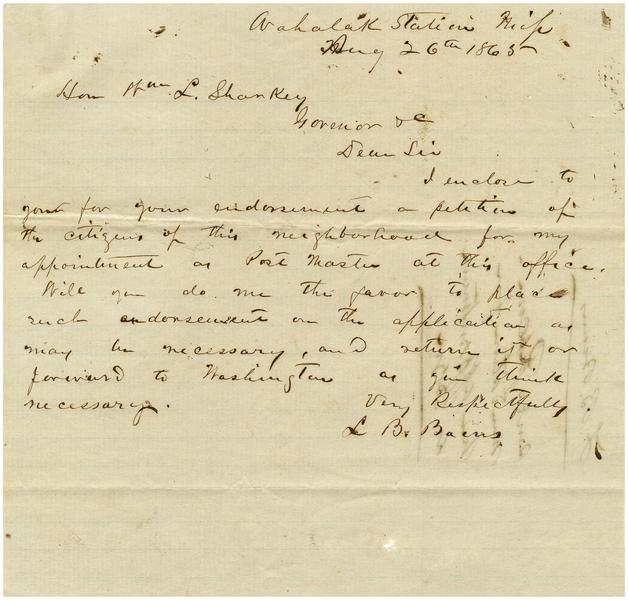 Wahalak Station Miss
Aug 26th 1865
Hon Wm L. Sharkey
Govenor &c
Dear Sir
I enclose to
you for your endorsement a petition of
the citizens of this neighborhood for my
appointment as Post Master at this office.
Will you do me the favor to place
such endorsement on the application as
may be necessary, and return it or
forward to Washington as you think
necessary.
Very Respectfully
L B. Bains